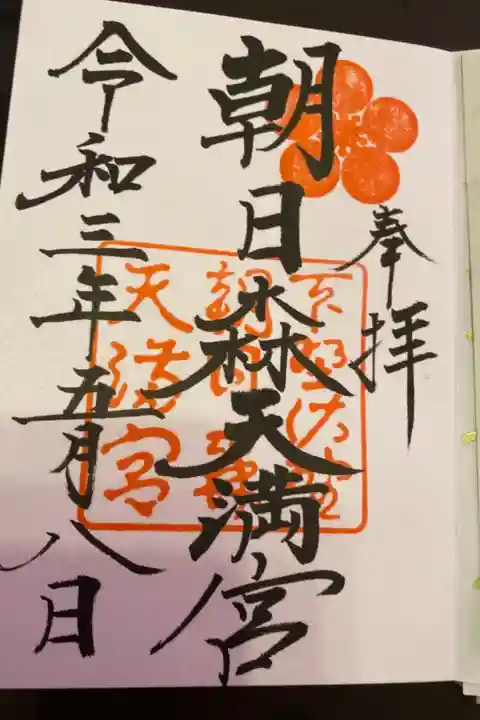 奉拝
朝日森天満宮
天満宮
令和三年五月八日